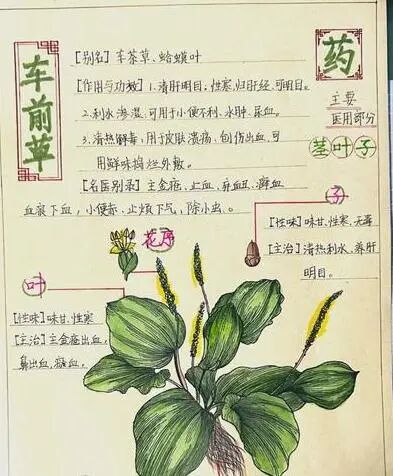 车前草
药
主要
医用部分
茎叶子
[别名] 车茶草、蛤蟆叶
[作用与功效] 1.清肝明目,性寒,归肝经,可明目。
2.利水渗湿,可用于小便不利、水肿、尿血。
3.清热解毒,用于皮肤溃疡、刨伤出血,可
用鲜味捣烂外敷。
[名医别录] 主金疮,止血,鼻血丑,瘀血
血衰下血,小便赤,止烦下气,除小虫。
子
[性味] 味甘、性寒、无毒
[主治] 清热利水、养肝
明目。
花序
叶
[性味] 味甘、性寒
[主治] 主金疮出血,
鼻出血,瘀血。